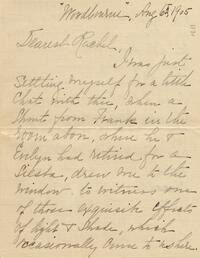 "Woodbourne", Aug 6, 1905
Dearest Rachel,
I was just
settling myself for a little
chat with thee, when a
shout from Frank in the
room above, where he &
Evelyn had retired for a
siesta, drew me to the
window to witness one
of those exquisite effects
of light & shade, which
occasionally come to us here.